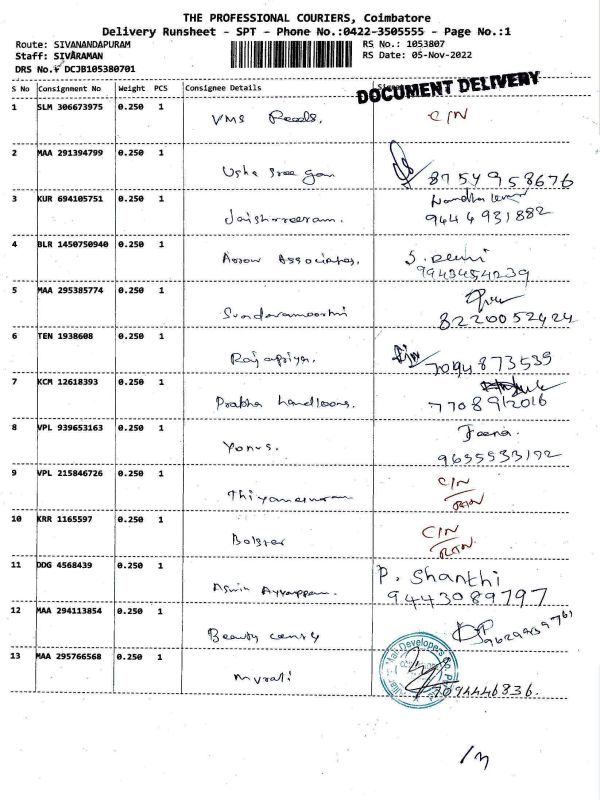 THE PROFESSIONAL COURIERS, Coimbatore
Delivery Runsheet - SPT - Phone No.:0422-3505555 - Page No.:1
Route: SIVANANDAPURAM RS No.: 1053807
Staff: SIVARAMAN RS Date: 05-Nov-2022
DRS No.: DCJB105380701
DOCUMENT DELIVERY
S No Consignment No Weight PCS Consignee Details
1 SLM 306673975 0.250 1 VMS Reeds. C/N
2 MAA 291394799 0.250 1 Usha Sree 87549 58676
3 KUR 694105751 0.250 1 Jaishreeram.
9444931882
4 BLR 1450750940 0.250 1 Arrow Associates. S. Devi
9943454239
5 MAA 295385774 0.250 1 Sundaramoorthi
8220052424
6 TEN 1938608 0.250 1 Rajapriya. 7094873539
7 KCM 12618393 0.250 1 Prabha handlooms.
7708912016
8 VPL 939653163 0.250 1 Yonus. Jeena.
9655533172
9 VPL 215846726 0.250 1 Thiyaneswaram C/N
RTN
10 KRR 1165597 0.250 1 Bolster C/N
RTN
11 DDG 4568439 0.250 1 Aswin Ayyappan. P. Shanthi
9443089797
12 MAA 294113854 0.250 1 Beauty 9629939761
13 MAA 295766568 0.250 1 Murali 7094446836.
Developers
13